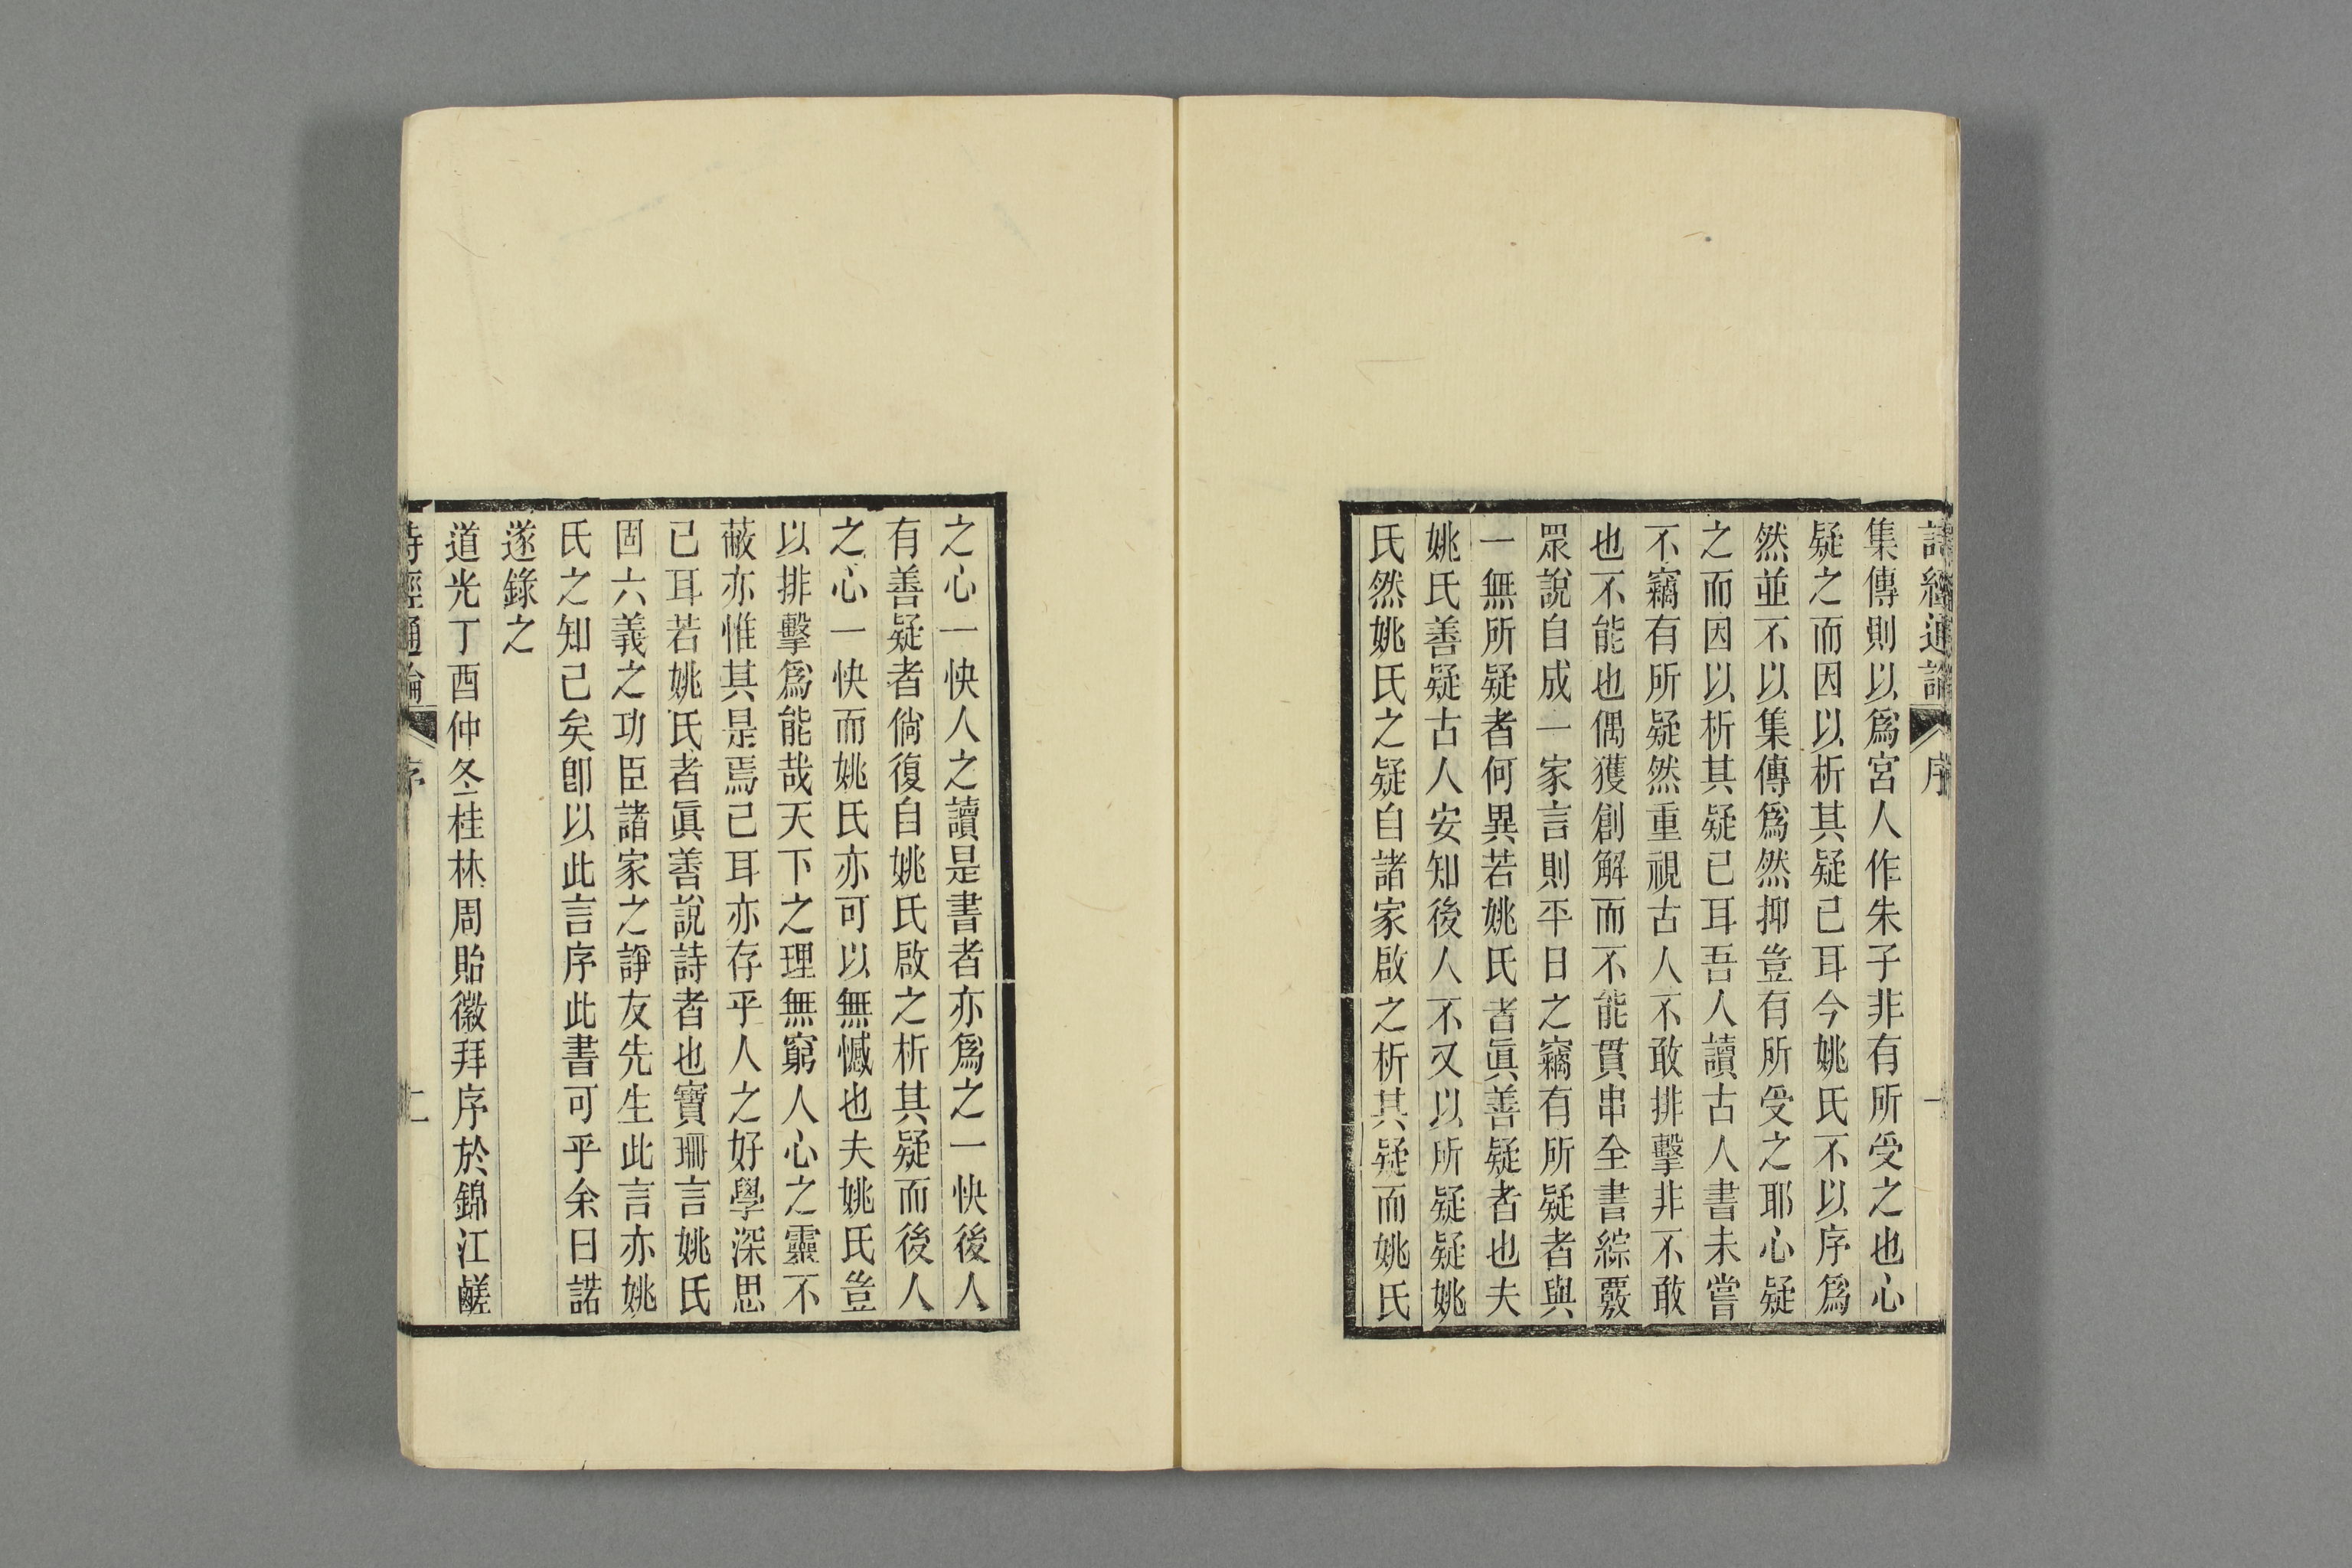 詩經通論　序　一
集傳則以爲宮人作朱子非有所受之也心
疑之而因以析其疑已耳今姚氏不以序爲
然並不以集傳爲然抑豈有所受之耶心疑
之而因以析其疑已耳吾人讀古人書未嘗
不竊有所疑然重視古人不敢排擊非不敢
也不能也偶獲創解而不能貫串全書綜覈
眾說自成一家言則平日之竊有所疑者與
一無所疑者何異若姚氏者眞善疑者也夫
姚氏善疑古人安知後人不又以所疑疑姚
氏然姚氏之疑自諸家啟之析其疑而姚氏
之心一快人之讀是書者亦爲之一快後人
有善疑者倘復自姚氏啟之析其疑而後人
之心一快而姚氏亦可以無憾也夫姚氏豈
以排擊爲能哉天下之理無窮人心之靈不
蔽亦惟其是焉已耳亦存乎人之好學深思
已耳若姚氏者眞善說詩者也寶珊言姚氏
固六義之功臣諸家之諍友先生此言亦姚
氏之知己矣卽以此言序此書可乎余曰諾
遂錄之
道光丁酉仲冬桂林周貽徽拜序於錦江鹺
詩經通論　序　二